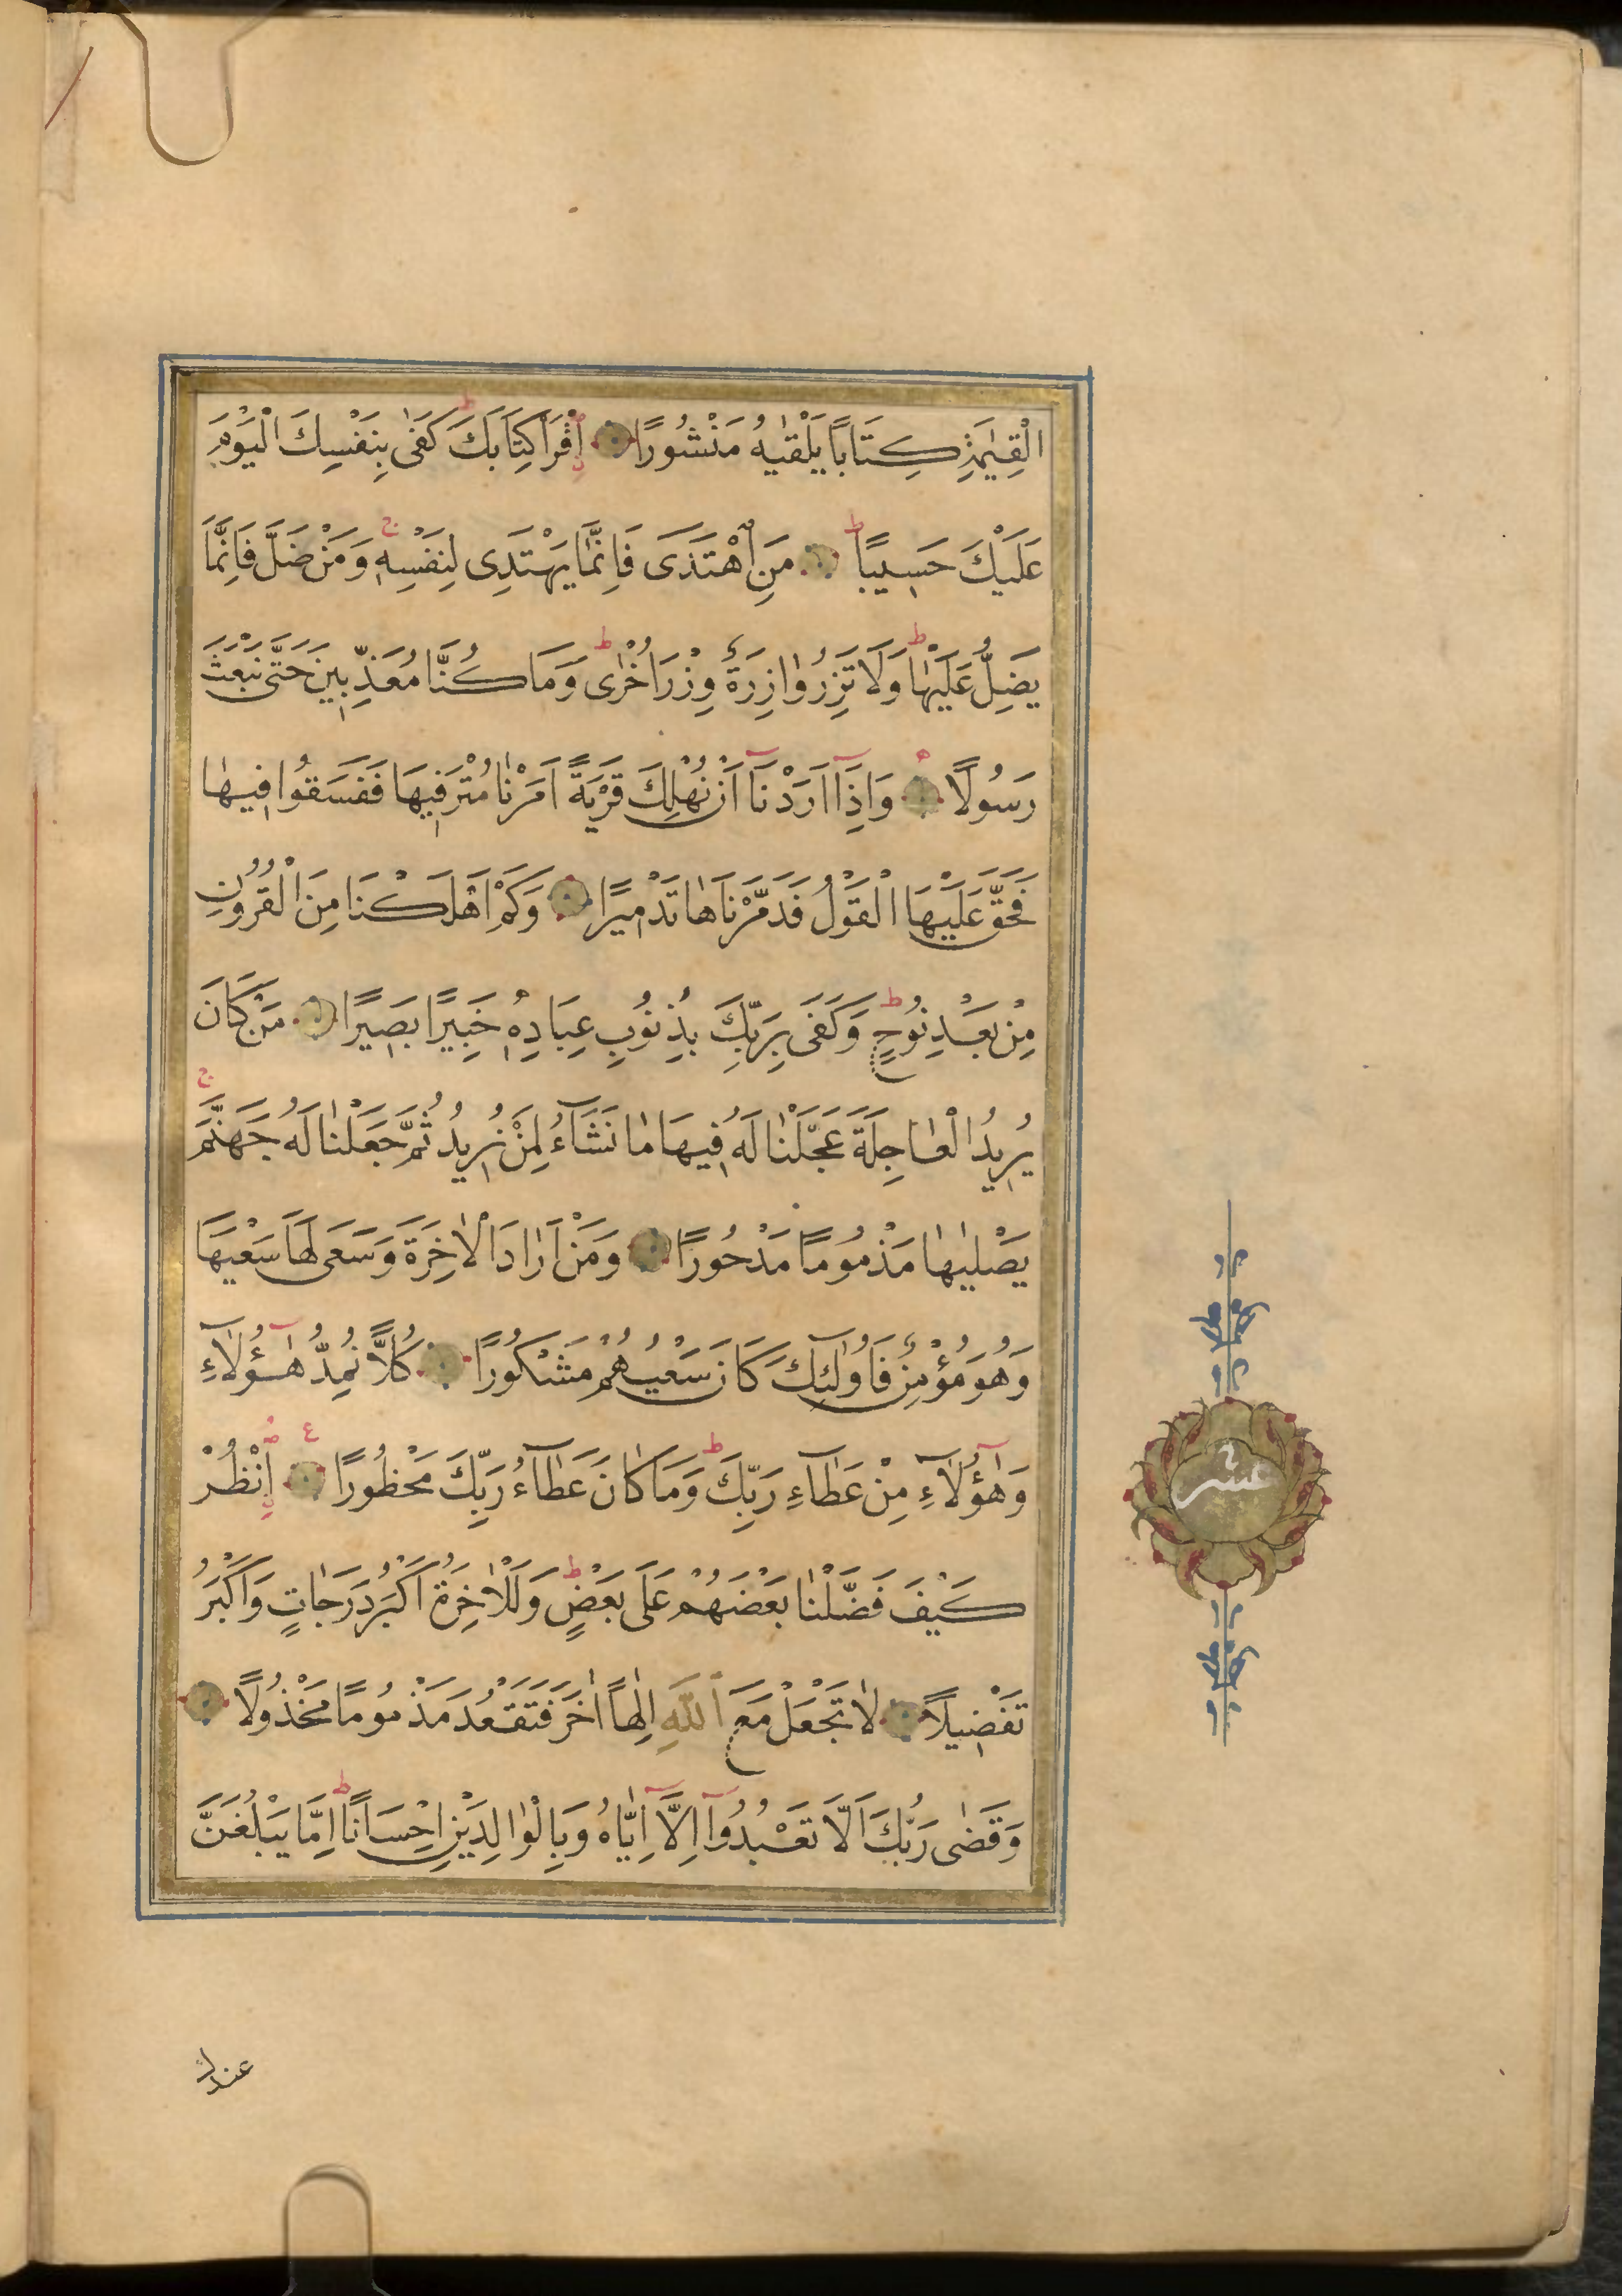 الْقِيٰمَةِ كِتَابًا يَلْقٰيهُ مَنْشُورًا اِقْرَاْ كِتَابَكَ كَفٰى بِنَفْسِكَ الْيَوْمَ
عَلَيْكَ حَسِيبًا مَنِ اهْتَدَى فَاِنَّمَا يَهْتَدِى لِنَفْسِهِ وَمَنْ ضَلَّ فَاِنَّمَا
يَضِلُّ عَلَيْهَا وَلَا تَزِرُ وَازِرَةٌ وِزْرَ اُخْرٰى وَمَا كُنَّا مُعَذِّبِينَ حَتَّى نَبْعَثَ
رَسُولًا وَاِذَا اَرَدْنَا اَنْ نُهْلِكَ قَرْيَةً اَمَرْنَا مُتْرَفِيهَا فَفَسَقُوا فِيهٰا
فَحَقَّ عَلَيْهَا الْقَوْلُ فَدَمَّرْنَاهٰا تَدْمِيرًا وَكَمْ اَهْلَكْنَا مِنَ الْقُرُونِ
مِنْ بَعْدِ نُوحٍ وَكَفَى بِرَبِّكَ بِذُنُوبِ عِبَادِهِ خَبِيرًا بَصِيرًا مَنْ كَانَ
يُرِيدُ الْعٰاجِلَةَ عَجَّلْنٰا لَهُ فِيهَا مٰا نَشَآءُ لِمَنْ نُرِيدُ ثُمَّ جَعَلْنٰا لَهُ جَهَنَّمَ
يَصْلٰيهٰا مَذْمُومًا مَدْحُورًا وَمَنْ اَرٰادَ الْاٰخِرَةَ وَسَعَى لَهَا سَعْيَهَا
وَهُوَ مُؤْمِنٌ فَاُولٰٓئِكَ كَانَ سَعْيُهُمْ مَشْكُورًا كُلًّا نُمِدُّ هٰٓؤُلَآءِ
وَهٰٓؤُلَآءِ مِنْ عَطَآءِ رَبِّكَ وَمَا كَانَ عَطَآءُ رَبِّكَ مَحْظُورًا ع اُنْظُرْ
كَيْفَ فَضَّلْنٰا بَعْضَهُمْ عَلَى بَعْضٍ وَلَلْاٰخِرَةُ اَكْبَرُ دَرَجٰاتٍ وَاَكْبَرُ
تَفْضِيلًا لٰا تَجْعَلْ مَعَ اللّٰهِ اِلٰهًا اٰخَرَ فَتَقْعُدَ مَذْمُومًا مَخْذُولًا
وَقَضٰى رَبُّكَ اَلَّا تَعْبُدُوٓا اِلَّآ اِيَّاهُ وَبِالْوٰالِدَيْنِ اِحْسَانًا اِمَّا يَبْلُغَنَّ
عشر
عندك